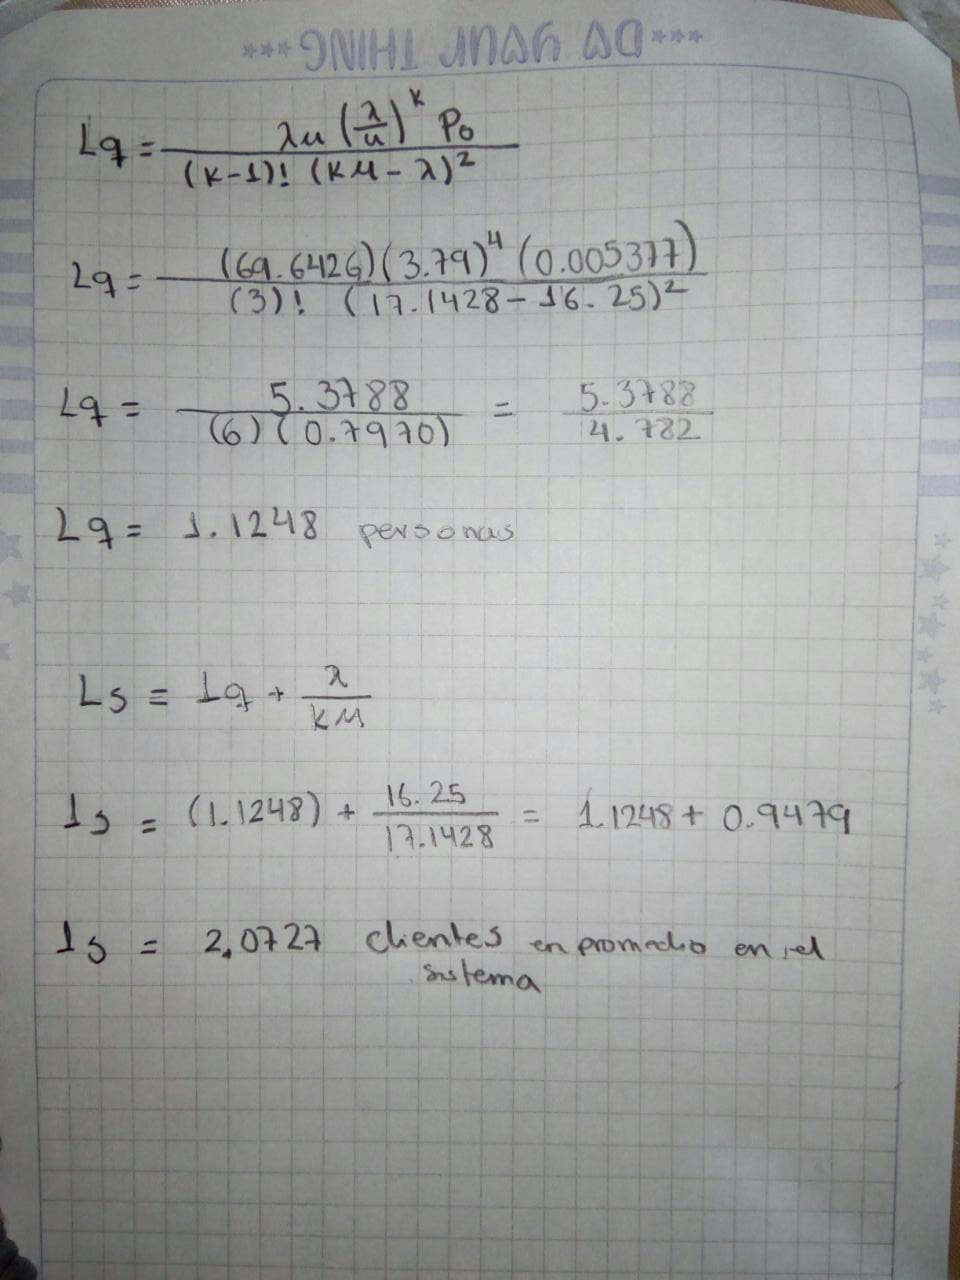 DO YOUR THING
Lq = λu (λ/u)^k Po / (k-1)! (kμ - λ)^2
Lq = (69.6426)(3.79)^4 (0.005377) / (3)! (17.1428 - 16.25)^2
Lq = 5.3788 / (6)(0.7970) = 5.3788 / 4.782
Lq = 1.1248 personas
Ls = Lq + λ / kμ
Ls = (1.1248) + 16.25 / 17.1428 = 1.1248 + 0.9479
Ls = 2,0727 clientes en promedio en el
sistema